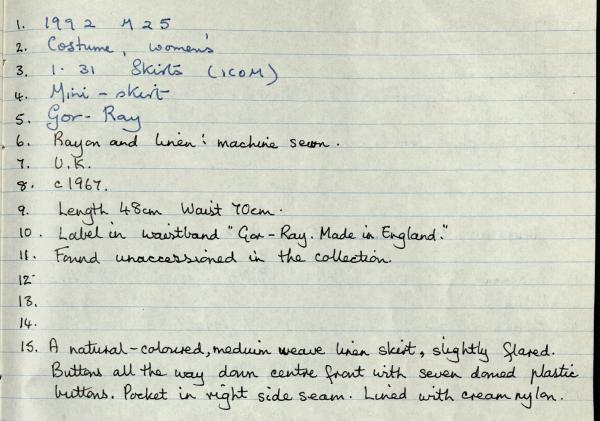 1. 1992 M 25
2. Costume, women's
3. 1.31 Skirts (ICOM)
4. Mini-skirt
5. Gor-Ray
6. Rayon and linen: machine sewn.
7. U.K.
8. c1967.
9. Length 48cm Waist 70cm.
10. Label in waistband "Gor-Ray. Made in England."
11. Found unaccessioned in the collection.
12.
13.
14.
15. A natural-coloured, medium weave linen skirt, slightly flared.
Buttons all the way down centre front with seven domed plastic
buttons. Pocket in right side seam. Lined with cream nylon.